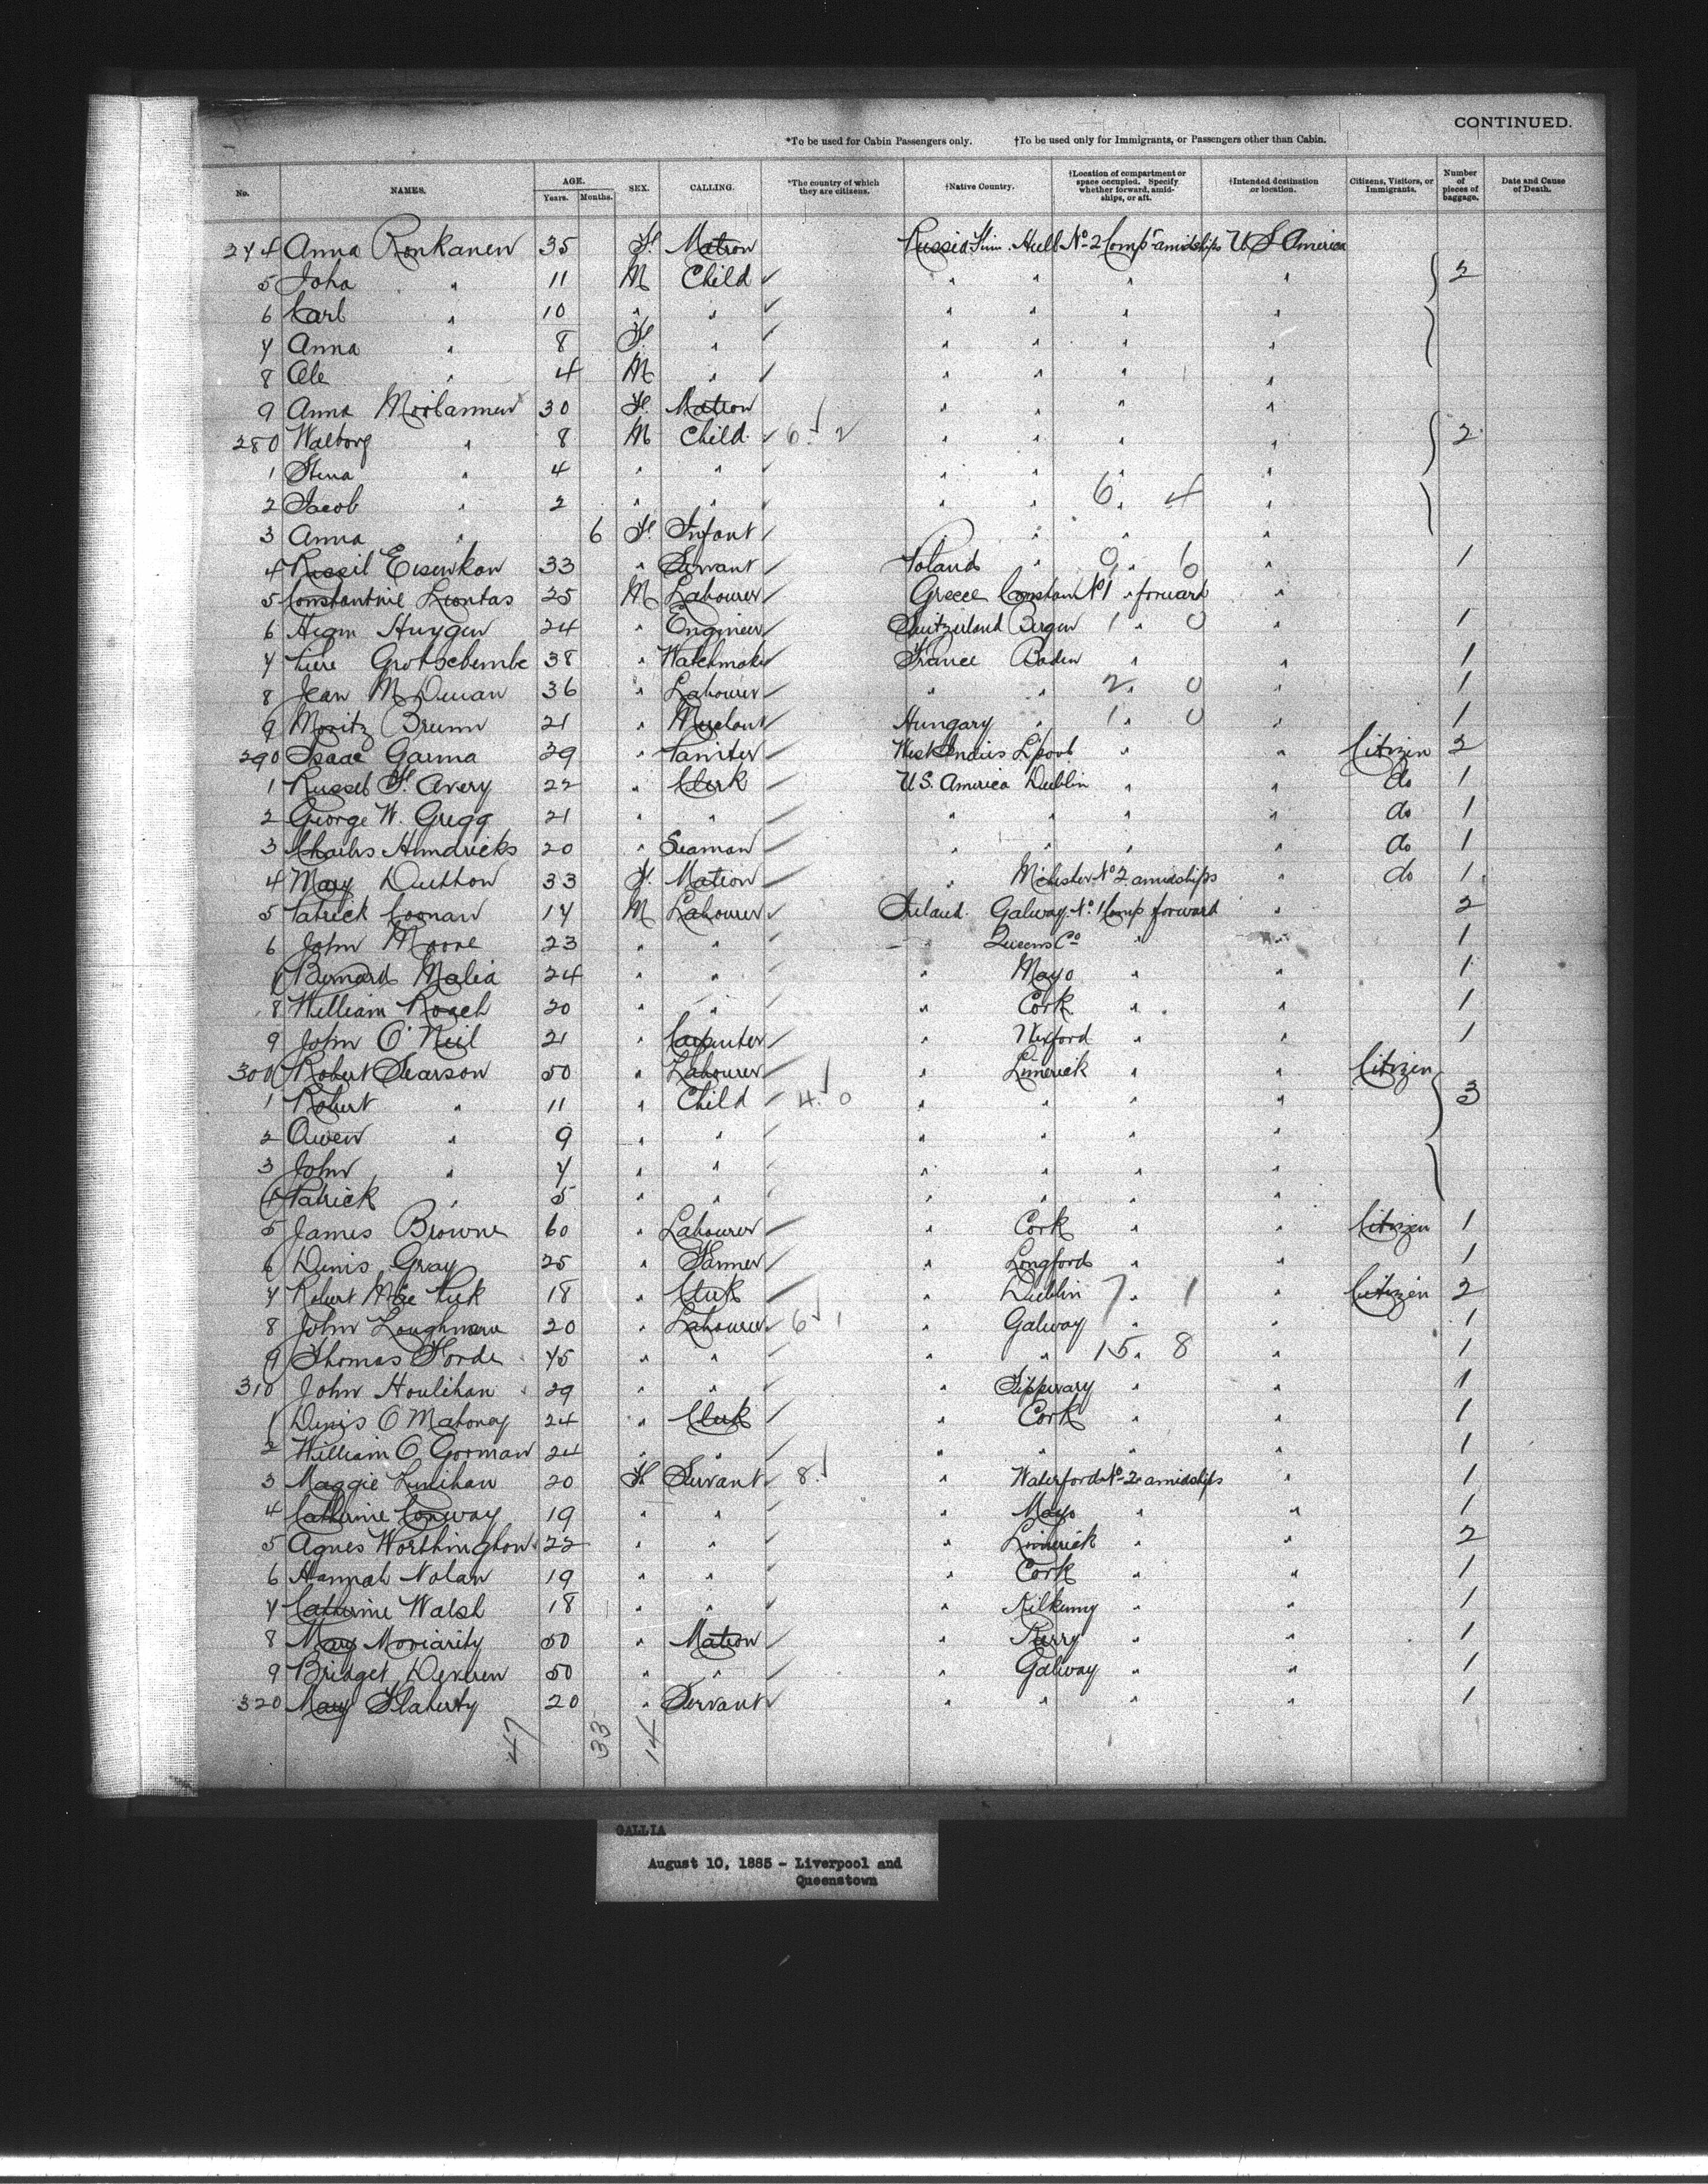 CONTINUED.
*To be used for Cabin Passengers only. †To be used only for Immigrants, or Passengers other than Cabin.
No. NAMES. AGE. Years. Months. SEX. CALLING. *The country of which they are citizens. †Native Country. †Location of compartment or space occupied. Specify whether forward, amidships, or aft. †Intended destination or location. Citizens, Visitors, or Immigrants. Number of pieces of baggage. Date and Cause of Death.
274 Anna Ronkanen 35 F. Matron Russia Finn. Hull No 2 Compt amidships U S America
5 Joha " 11 M Child " " " " 2
6 Carl " 10 " " " " " "
7 Anna " 8 F. " " " " "
8 Ole " 4 M " " " " "
9 Anna 30 F. Matron " " " "
280 Walborg " 8 M Child 6 2 " " " " 2
1 Stina " 4 " " " " " "
2 Jacob " 2 " " " " 6 " 4 "
3 Anna " 6 F. Infant " " "
4 33 " Servant Poland " 0 " 6 " 1
5 Constantine Liontas 25 M Labourer Greece Constan No 1 " forward "
6 Huygen 24 " Engineer Switzerland Bergen 1 " 0 " 1
7 38 " Watchmaker France Baden " " 1
8 Jean M 36 " Labourer " " 2 " 0 1
9 Moritz Brunn 21 " Hungary " 1 " 0 " 1
290 Isaac Garma 29 " Painter West Indies L'pool " " Citizen 2
1 Russel F. Avery 22 " Clerk U.S. America Dublin " " do 1
2 George W. Gregg 21 " " " " " " do 1
3 Charles Hendricks 20 " Seaman " " " " do 1
4 Mary Dutton 33 F. Matron " M'chester No 2 amidships " do 1
5 Patrick Coonan 17 M Labourer Ireland Galway No 1 Comp forward " 2
6 John Moore 23 " " " Queens Co " " 1
7 Bernard Malia 24 " " " Mayo " " 1
8 William Roach 20 " " " Cork " " 1
9 John O'Neil 21 " Carpenter " Wexford " " 1
300 Robert Searson 50 " Labourer " Limerick " " Citizen
1 Robert " 11 " Child 4 0 " " " " 3
2 Owen " 9 " " " " " "
3 John " 7 " " " " " "
4 Patrick " 5 " " " " " "
5 James Browne 60 " Labourer " Cork " " Citizen 1
6 Denis Gray 25 " Farmer " Longford " " 1
7 Robert 18 " Clerk " Dublin 7 " 1 " Citizen 2
8 John Loughnane 20 " Labourer 6 1 " Galway " " 1
9 Thomas Forde 45 " " " " 15 " 8 " 1
310 John Houlihan 29 " " " Tipperary " " 1
1 Denis O'Mahoney 24 " Clerk " Cork " " 1
2 William O'Gorman 24 " " " " " " 1
3 Maggie Linihan 20 F. Servant 8 " Waterford No 2 amidships " 1
4 Catherine Conway 19 " " " Mayo " " 1
5 Agnes Worthington 22 " " " Limerick " " 2
6 Hannah Nolan 19 " " " Cork " " 1
7 Catherine Walsh 18 " " " Kilkenny " " 1
8 Mary Moriarity 50 " Matron " Kerry " " 1
9 Bridget 50 " " " Galway " " 1
320 Mary Flaherty 20 " Servant " " " " 1
47 33 14
GALLIA
August 10, 1885 - Liverpool and
Queenstown